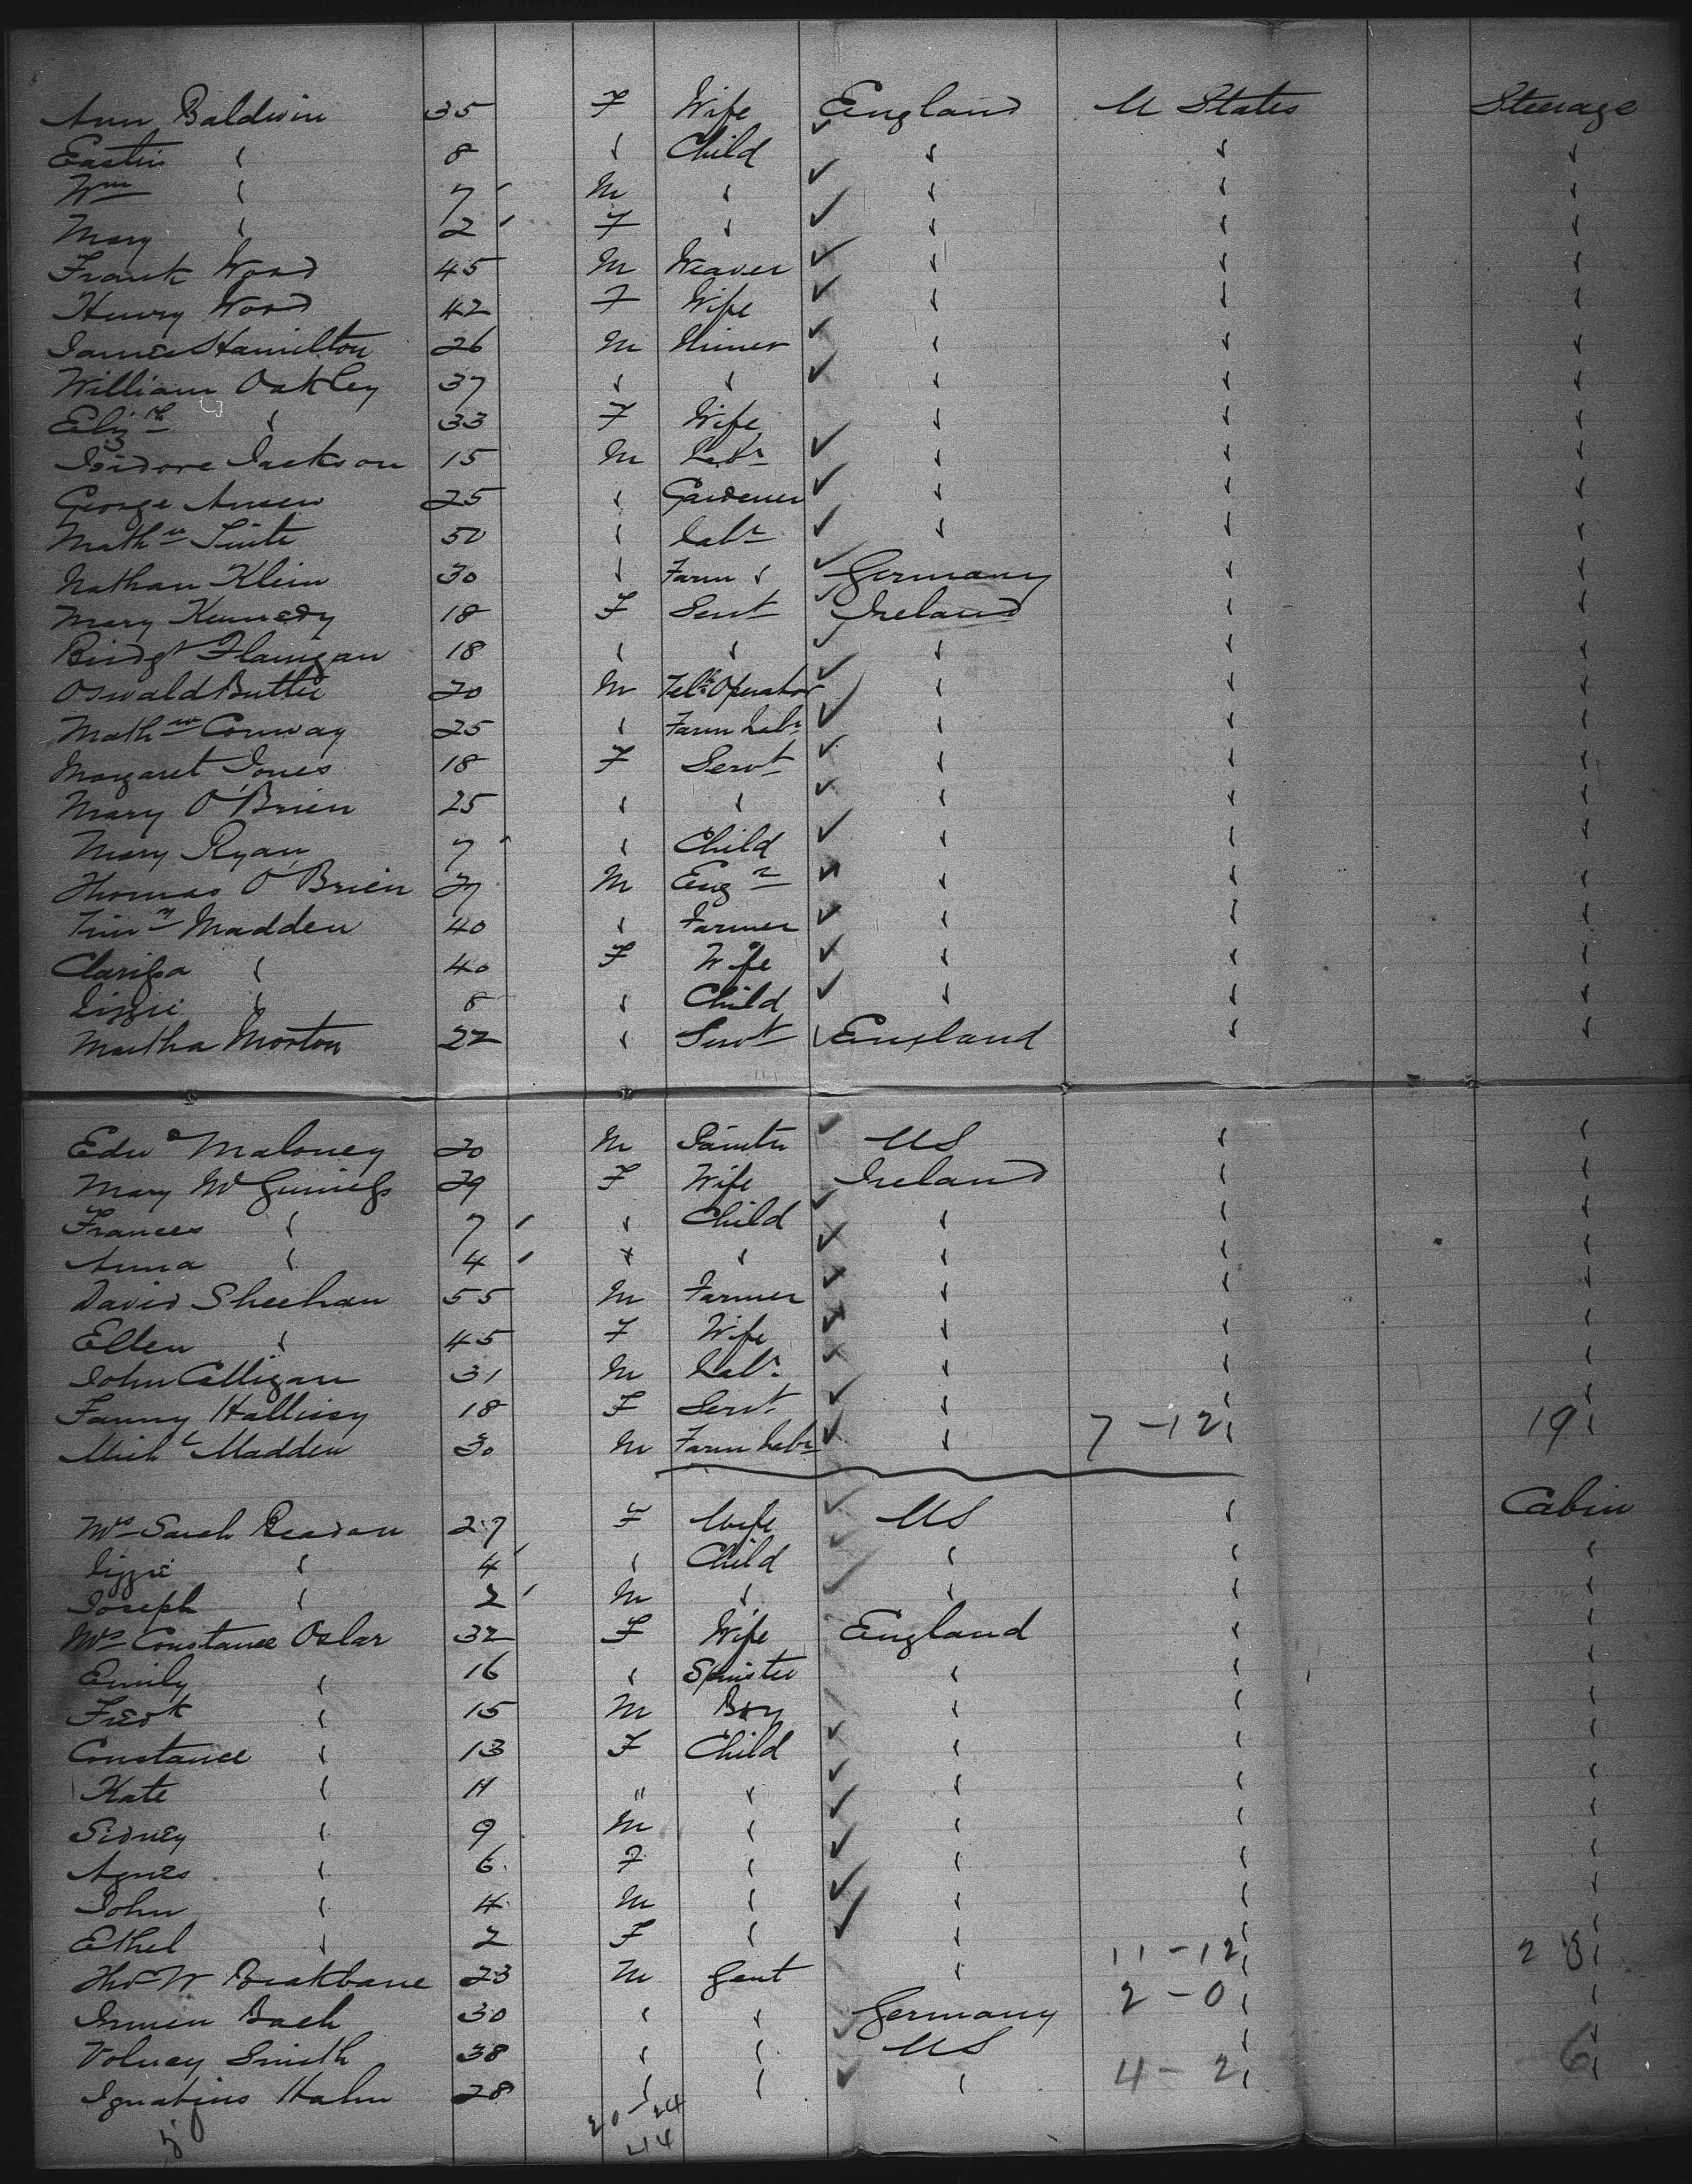 Ann Baldwin 35 F Wife England U States Steerage
Eastin " 8 " Child " " "
Wm " 7 M " " " "
Mary " 2 F " " " "
Frank Wood 45 M Weaver " " "
Henry Wood 42 F Wife " " "
James Hamilton 26 M Miner " " "
William Oakley 37 " " " " "
Elizth " 33 F Wife " " "
Isidore Jackson 15 M Labr " " "
George 25 " Gardener " " "
Mathw 50 " Labr " " "
Nathan Klein 30 " Farm " Germany " "
Mary Kennedy 18 F Servt Ireland " "
Bridgt Flanigan 18 " " " " "
Oswald Butler 20 M Telh Operator " " "
Mathw Conway 25 " Farm Labr " " "
Margaret Jones 18 F Servt " " "
Mary O'Brien 25 " " " " "
Mary Ryan 7 " Child " " "
Thomas O'Brien 27 M Engr " " "
Timy Madden 40 " Farmer " " "
Clarissa " 40 F Wife " " "
Lizzie " 8 " Child " " "
Martha Morton 22 " Servt England " "
Edwd Maloney 20 M Painter US " "
Mary McGuiness 29 F Wife Ireland " "
Frances " 7 " Child " " "
Anna " 4 " " " " "
David Sheehan 55 M Farmer " " "
Ellen " 45 F Wife " " "
John Calligan 31 M Labr " " "
Fanny Hallissy 18 F Servt " " "
Michl Madden 30 M Farm Labr " 7-12 " 19 "
Mrs Sarah Reardon 27 F Wife US " Cabin
Lizzie " 4 " Child " " "
Joseph " 2 M " " " "
Mrs Constance Oslar 32 F Wife England " "
Emily " 16 " Spinster " " "
Fredk " 15 M Boy " " "
Constance " 13 F Child " " "
Kate " 11 " " " " "
Sidney " 9 M " " " "
Agnes " 6 F " " " "
John " 4 M " " " "
Ethel " 2 F " " " "
Thos W 23 M Gent " 11-12 " 23 "
Bach 30 " " Germany 2-0 " "
Volney Smith 38 " " US " "
Ignatius Hahn 28 " " " 4-2 " 6 "
20-24